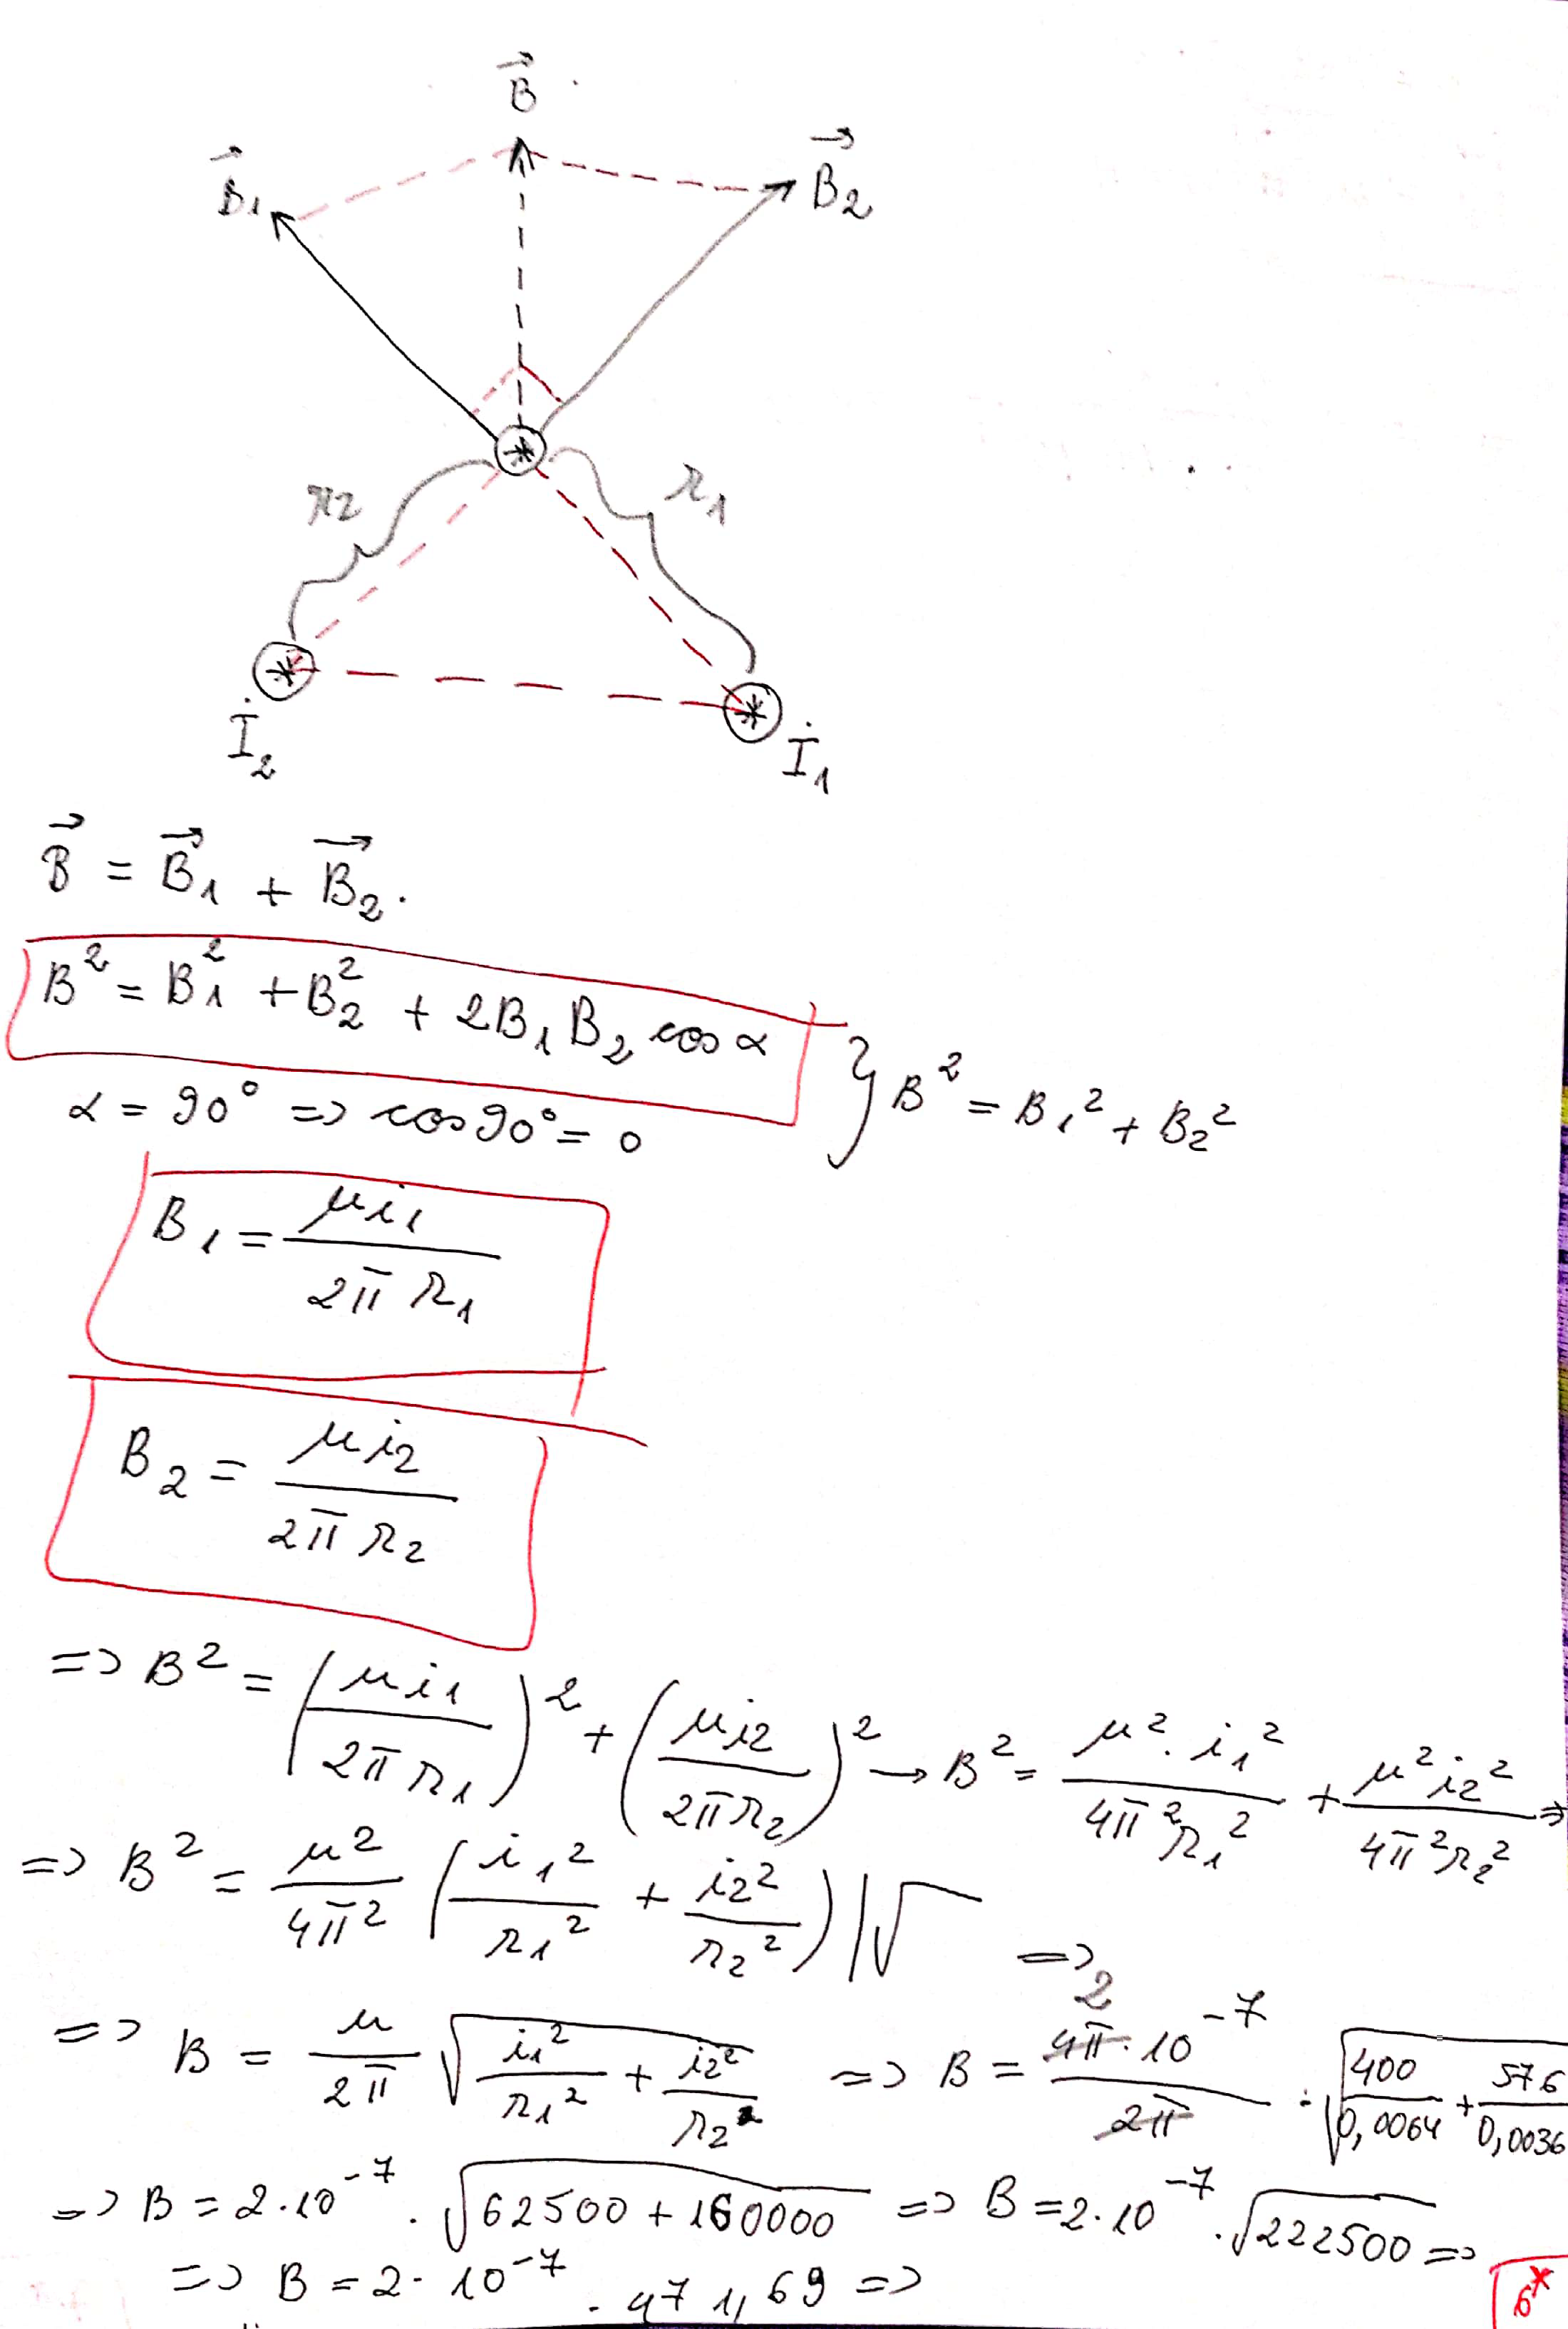 B⃗
B⃗1 B⃗2
r2 r1
I2 I1
B⃗ = B⃗1 + B⃗2.
B² = B1² + B2² + 2B1 B2 cos α
α = 90° => cos 90° = 0 } B² = B1² + B2²
B1 = μi1 / 2π r1
B2 = μi2 / 2π r2
=> B² = (μi1 / 2π r1)² + (μi2 / 2π r2)² → B² = μ². i1² / 4π² r1² + μ² i2² / 4π² r2² =>
=> B² = μ² / 4π² (i1² / r1² + i2² / r2²) |√ =>
=> B = μ / 2π √(i1² / r1² + i2² / r2²) => B = 2 4π · 10⁻⁷ / 2π · √(400 / 0,0064 + 576 / 0,0036
=> B = 2.10⁻⁷ . √(62500 + 160000) => B = 2.10⁻⁷ . √222500 =>
=> B = 2. 10⁻⁷ . 471,69 =>
6*